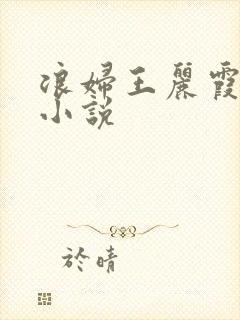 浪婦王麗霞
小說
於晴